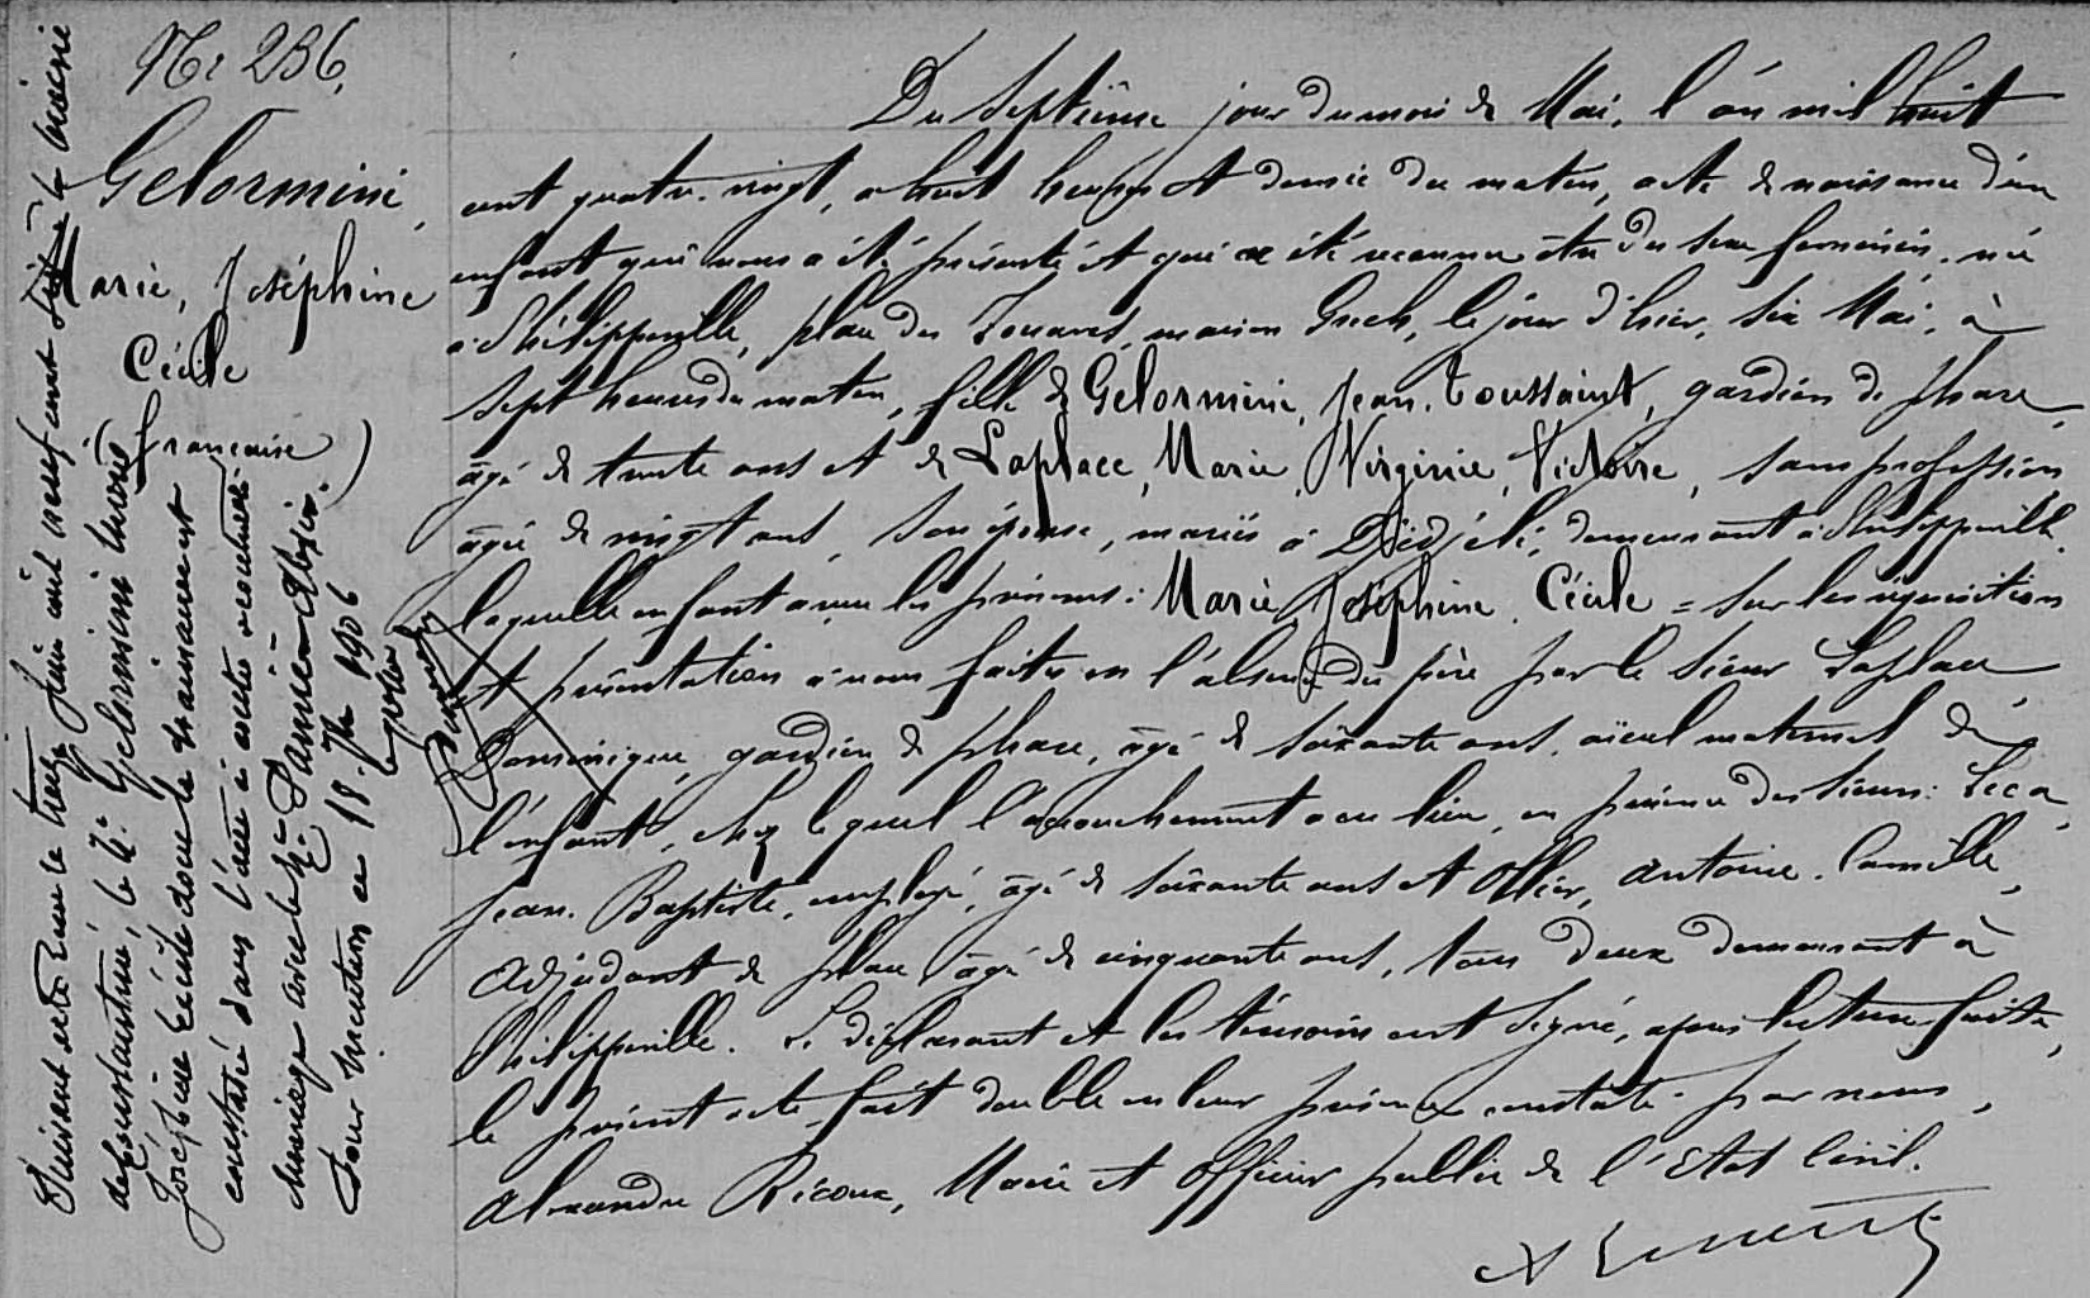 No 236.
Gelormini,
Marie, Joséphine
Cécile
(française)
Du septième jour du mois de Mai, l'an mil huit
cent quatre-vingt, à huit heures et demie du matin, acte de naissance d'un
enfant qui nous a été présenté et qui a été reconnu être du sexe féminin, née
à Philippeville, place des Zouaves, maison Grech, le jour d'hier, six Mai, à
sept heures du matin, fille de Gelormini, Jean-Toussaint, gardien de phare,
âgé de trente ans et de Laplace, Marie, Virginie, Victoire, sans profession
âgée de vingt ans, son épouse, mariés à Djidjéli, demeurant à Philippeville,
laquelle enfant a reçu les prénoms: Marie, Joséphine, Cécile = Sur les réquisition
et présentation à nous faites en l'absence du père par le sieur Laplace,
Dominique, gardien de phare, âgé de soixante ans, aïeul maternel de
l'enfant, chez lequel l'accouchement a eu lieu, en présence des sieurs: Leca,
Jean-Baptiste, employé, âgé de soixante ans et Ollier, Antoine-Camille,
adjudant de place, âgé de cinquante ans, tous deux demeurant à
Philippeville. Le déclarant et les témoins ont signé, après lecture faite,
le présent acte fait double en leur présence et constaté par nous,
Alexandre Ricoux, Maire et Officier public de l'Etat Civil.
Suivant acte reçu le treize Juin mil neuf cent six à la mairie
de Constantine, la De Gelormini Marie
Joséphine Cécile dont la naissance est
constatée dans l'acte ci contre a contracté
mariage avec le Sr
Pour mention ce 18 Jin 1906
Le greffier